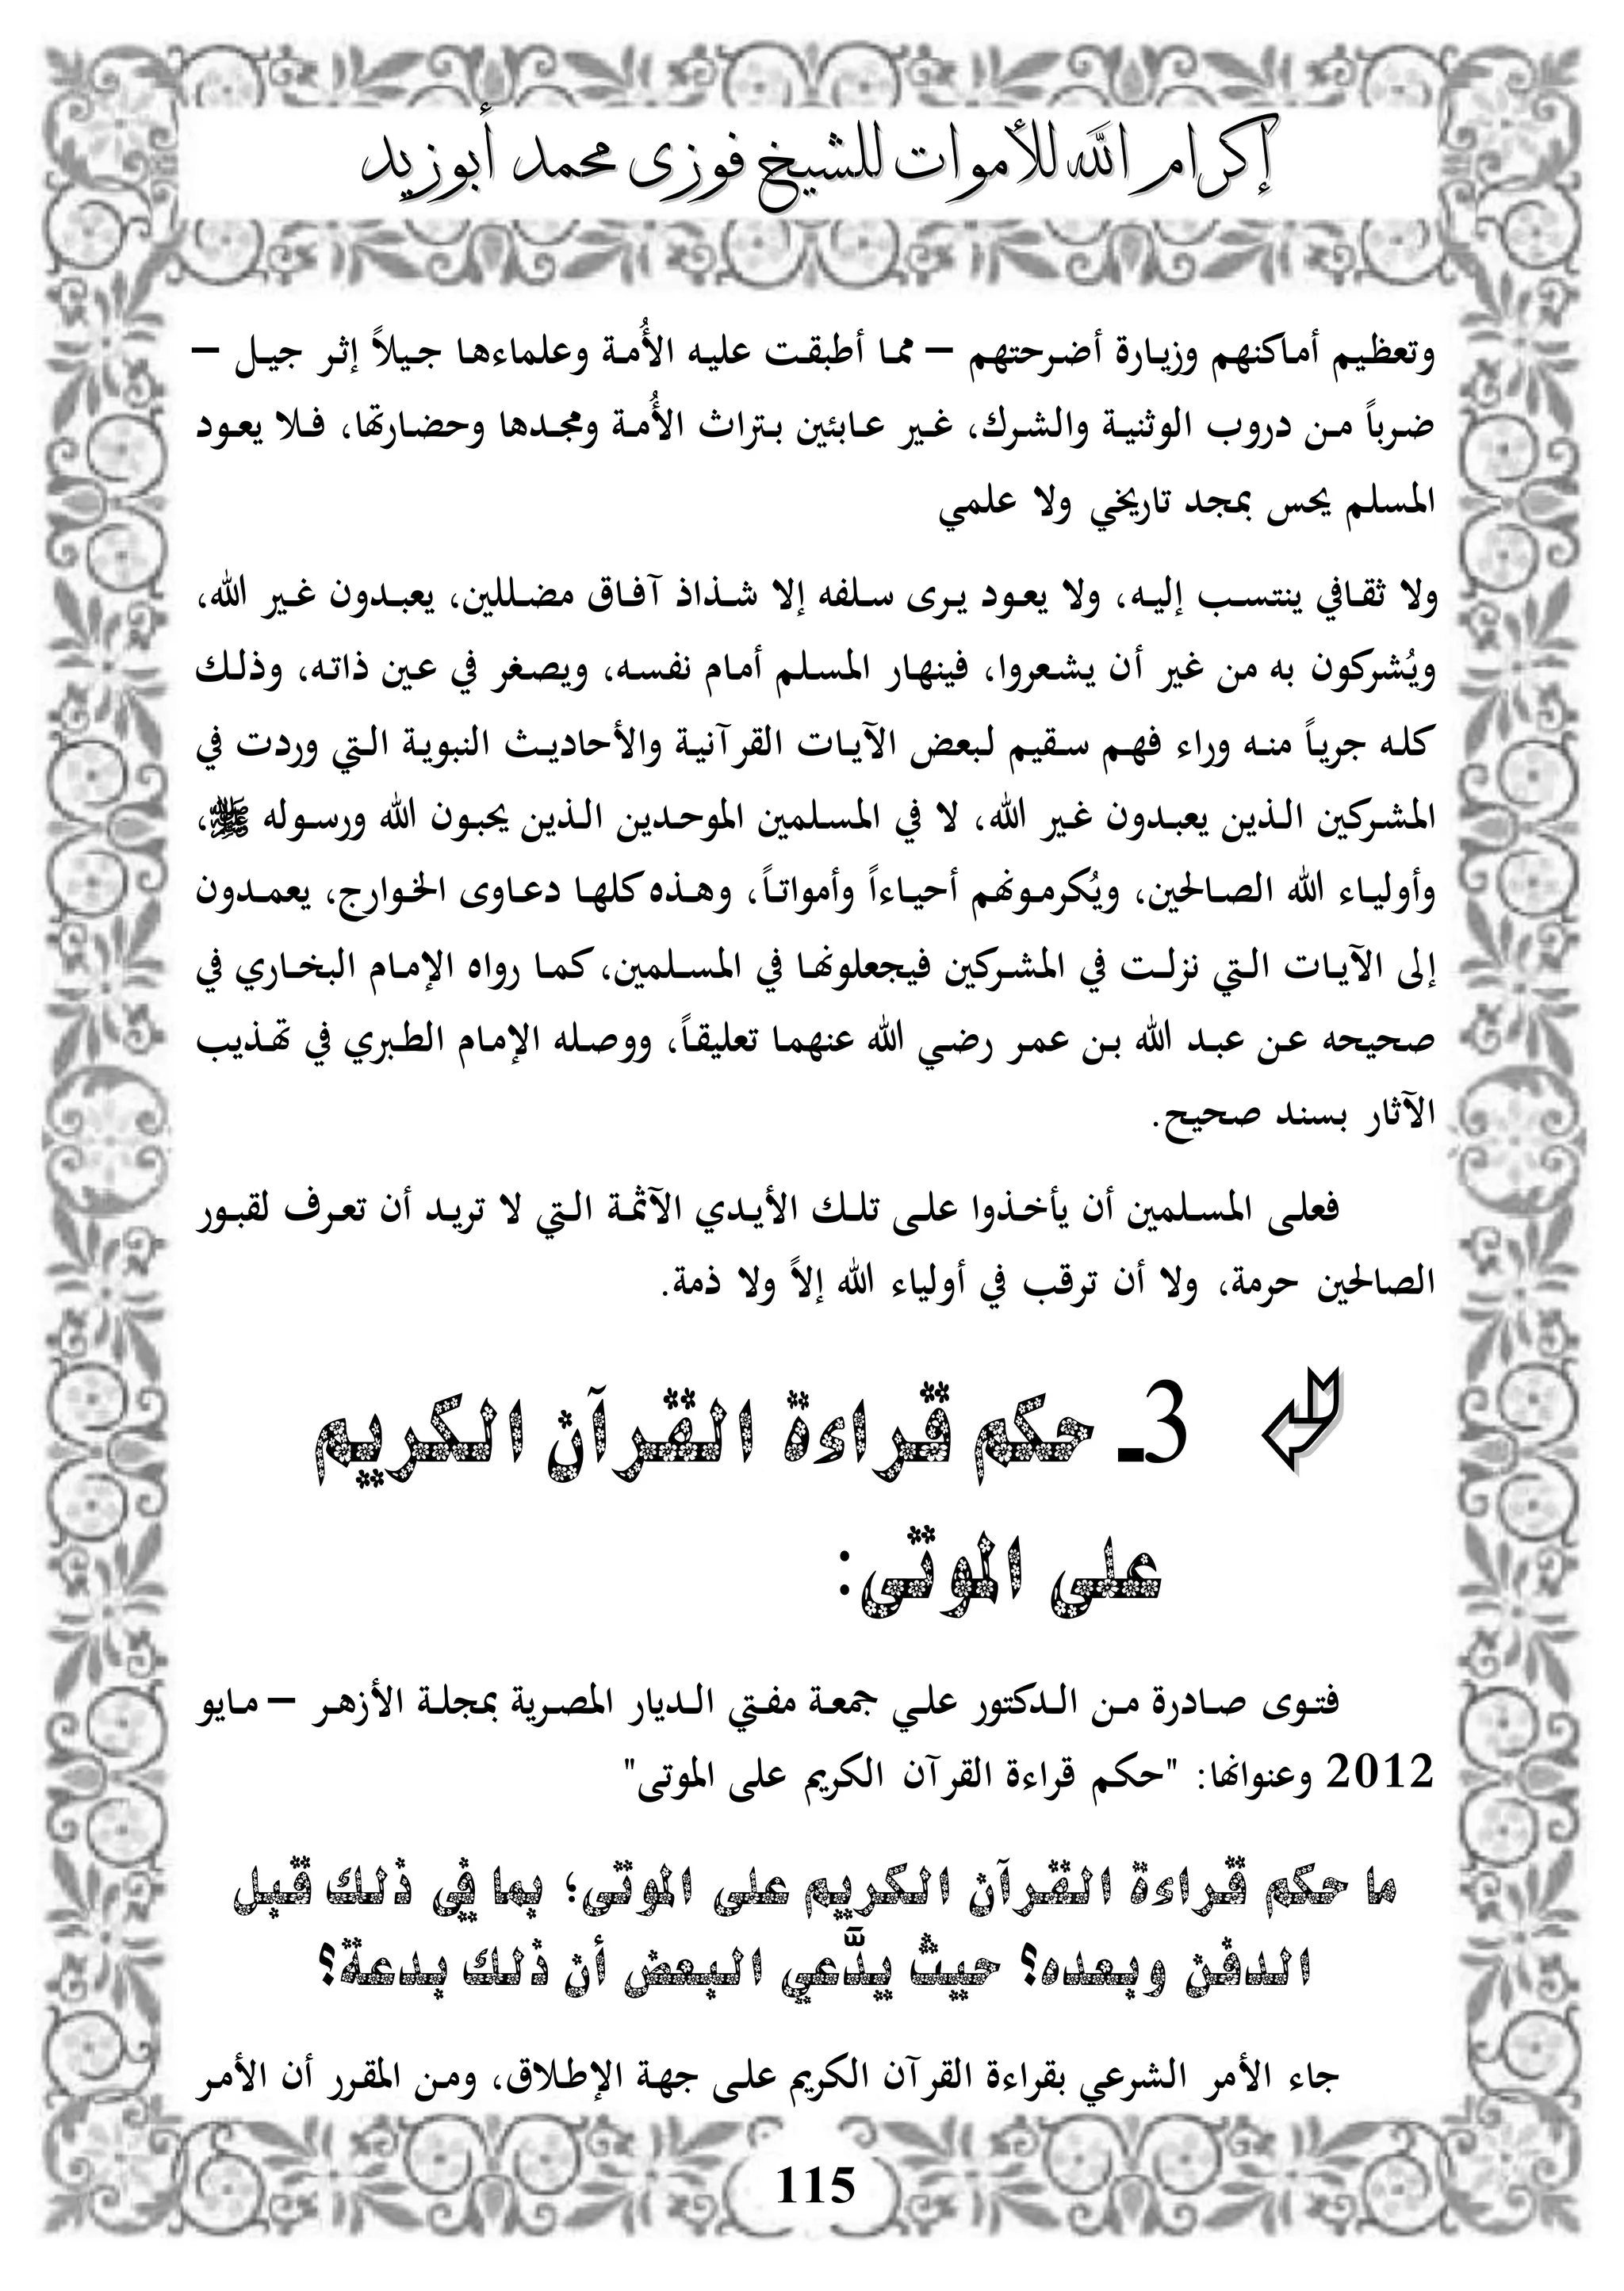 إكرام الله للأموات للشيخ فوزى محمد أبوزيد
وتعظيم أماكنهم وزيارة أضرحتهم – مما أطبقت عليه الأُمة وعلماءها جيلاً إثر جيل –
ضرباً من دروب الوثنية والشرك، غير عابئين بتراث الأُمة ومجدها وحضارتها، فلا يعود
المسلم يحس بمجد تاريخي ولا علمي
ولا ثقافي ينتسب إليه، ولا يعود يرى سلفه إلا شذاذ آفاق مضللين، يعبدون غير الله،
ويُشركون به من غير أن يشعروا، فينهار المسلم أمام نفسه، ويصغر في عين ذاته، وذلك
كله جرياً منه وراء فهم سقيم لبعض الآيات القرآنية والأحاديث النبوية التي وردت في
المشركين الذين يعبدون غير الله، لا في المسلمين الموحدين الذين يحبون الله ورسوله ﷺ،
وأولياء الله الصالحين، ويُكرمونهم أحياءاً وأمواتاً، وهذه كلها دعاوى الخوارج، يعمدون
إلى الآيات التي نزلت في المشركين فيجعلونها في المسلمين، كما رواه الإمام البخاري في
صحيحه عن عبد الله بن عمر رضي الله عنهما تعليقاً، ووصله الإمام الطبري في تهذيب
الآثار بسند صحيح.
فعلى المسلمين أن يأخذوا على تلك الأيدي الآثمة التي لا تريد أن تعرف لقبور
الصالحين حرمة، ولا أن ترقب في أولياء الله إلاً ولا ذمة.
3ـ حكم قراءة القرآن الكريم
على الموتى:
فتوى صادرة من الدكتور علي جمعة مفتي الديار المصرية بمجلة الأزهر – مايو
2012 وعنوانها: "حكم قراءة القرآن الكريم على الموتى"
ما حكم قراءة القرآن الكريم على الموتى؛ بما في ذلك قبل
الدفن وبعده؟ حيث يدَّعي البعض أن ذلك بدعة؟
جاء الأمر الشرعي بقراءة القرآن الكريم على جهة الإطلاق، ومن المقرر أن الأمر
115